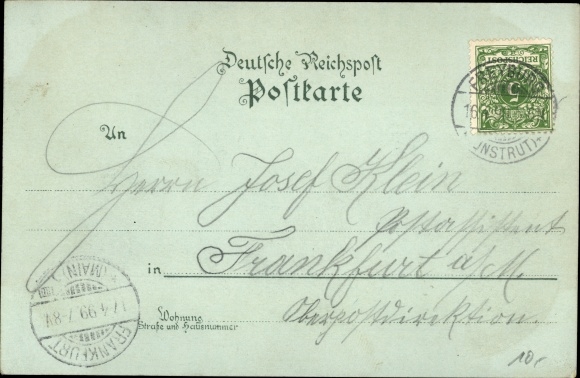 Deutsche Reichspost
Postkarte
REICHSPOST
5
FREYBURG
(UNSTRUT)
An
Herrn Josef Klein
Postassistent
in Frankfurt a/M.
Wohnung
Straße und Hausnummer
Oberpostdirektion.
FRANKFURT
17.4.99.7-8V.
(MAIN)
10,-